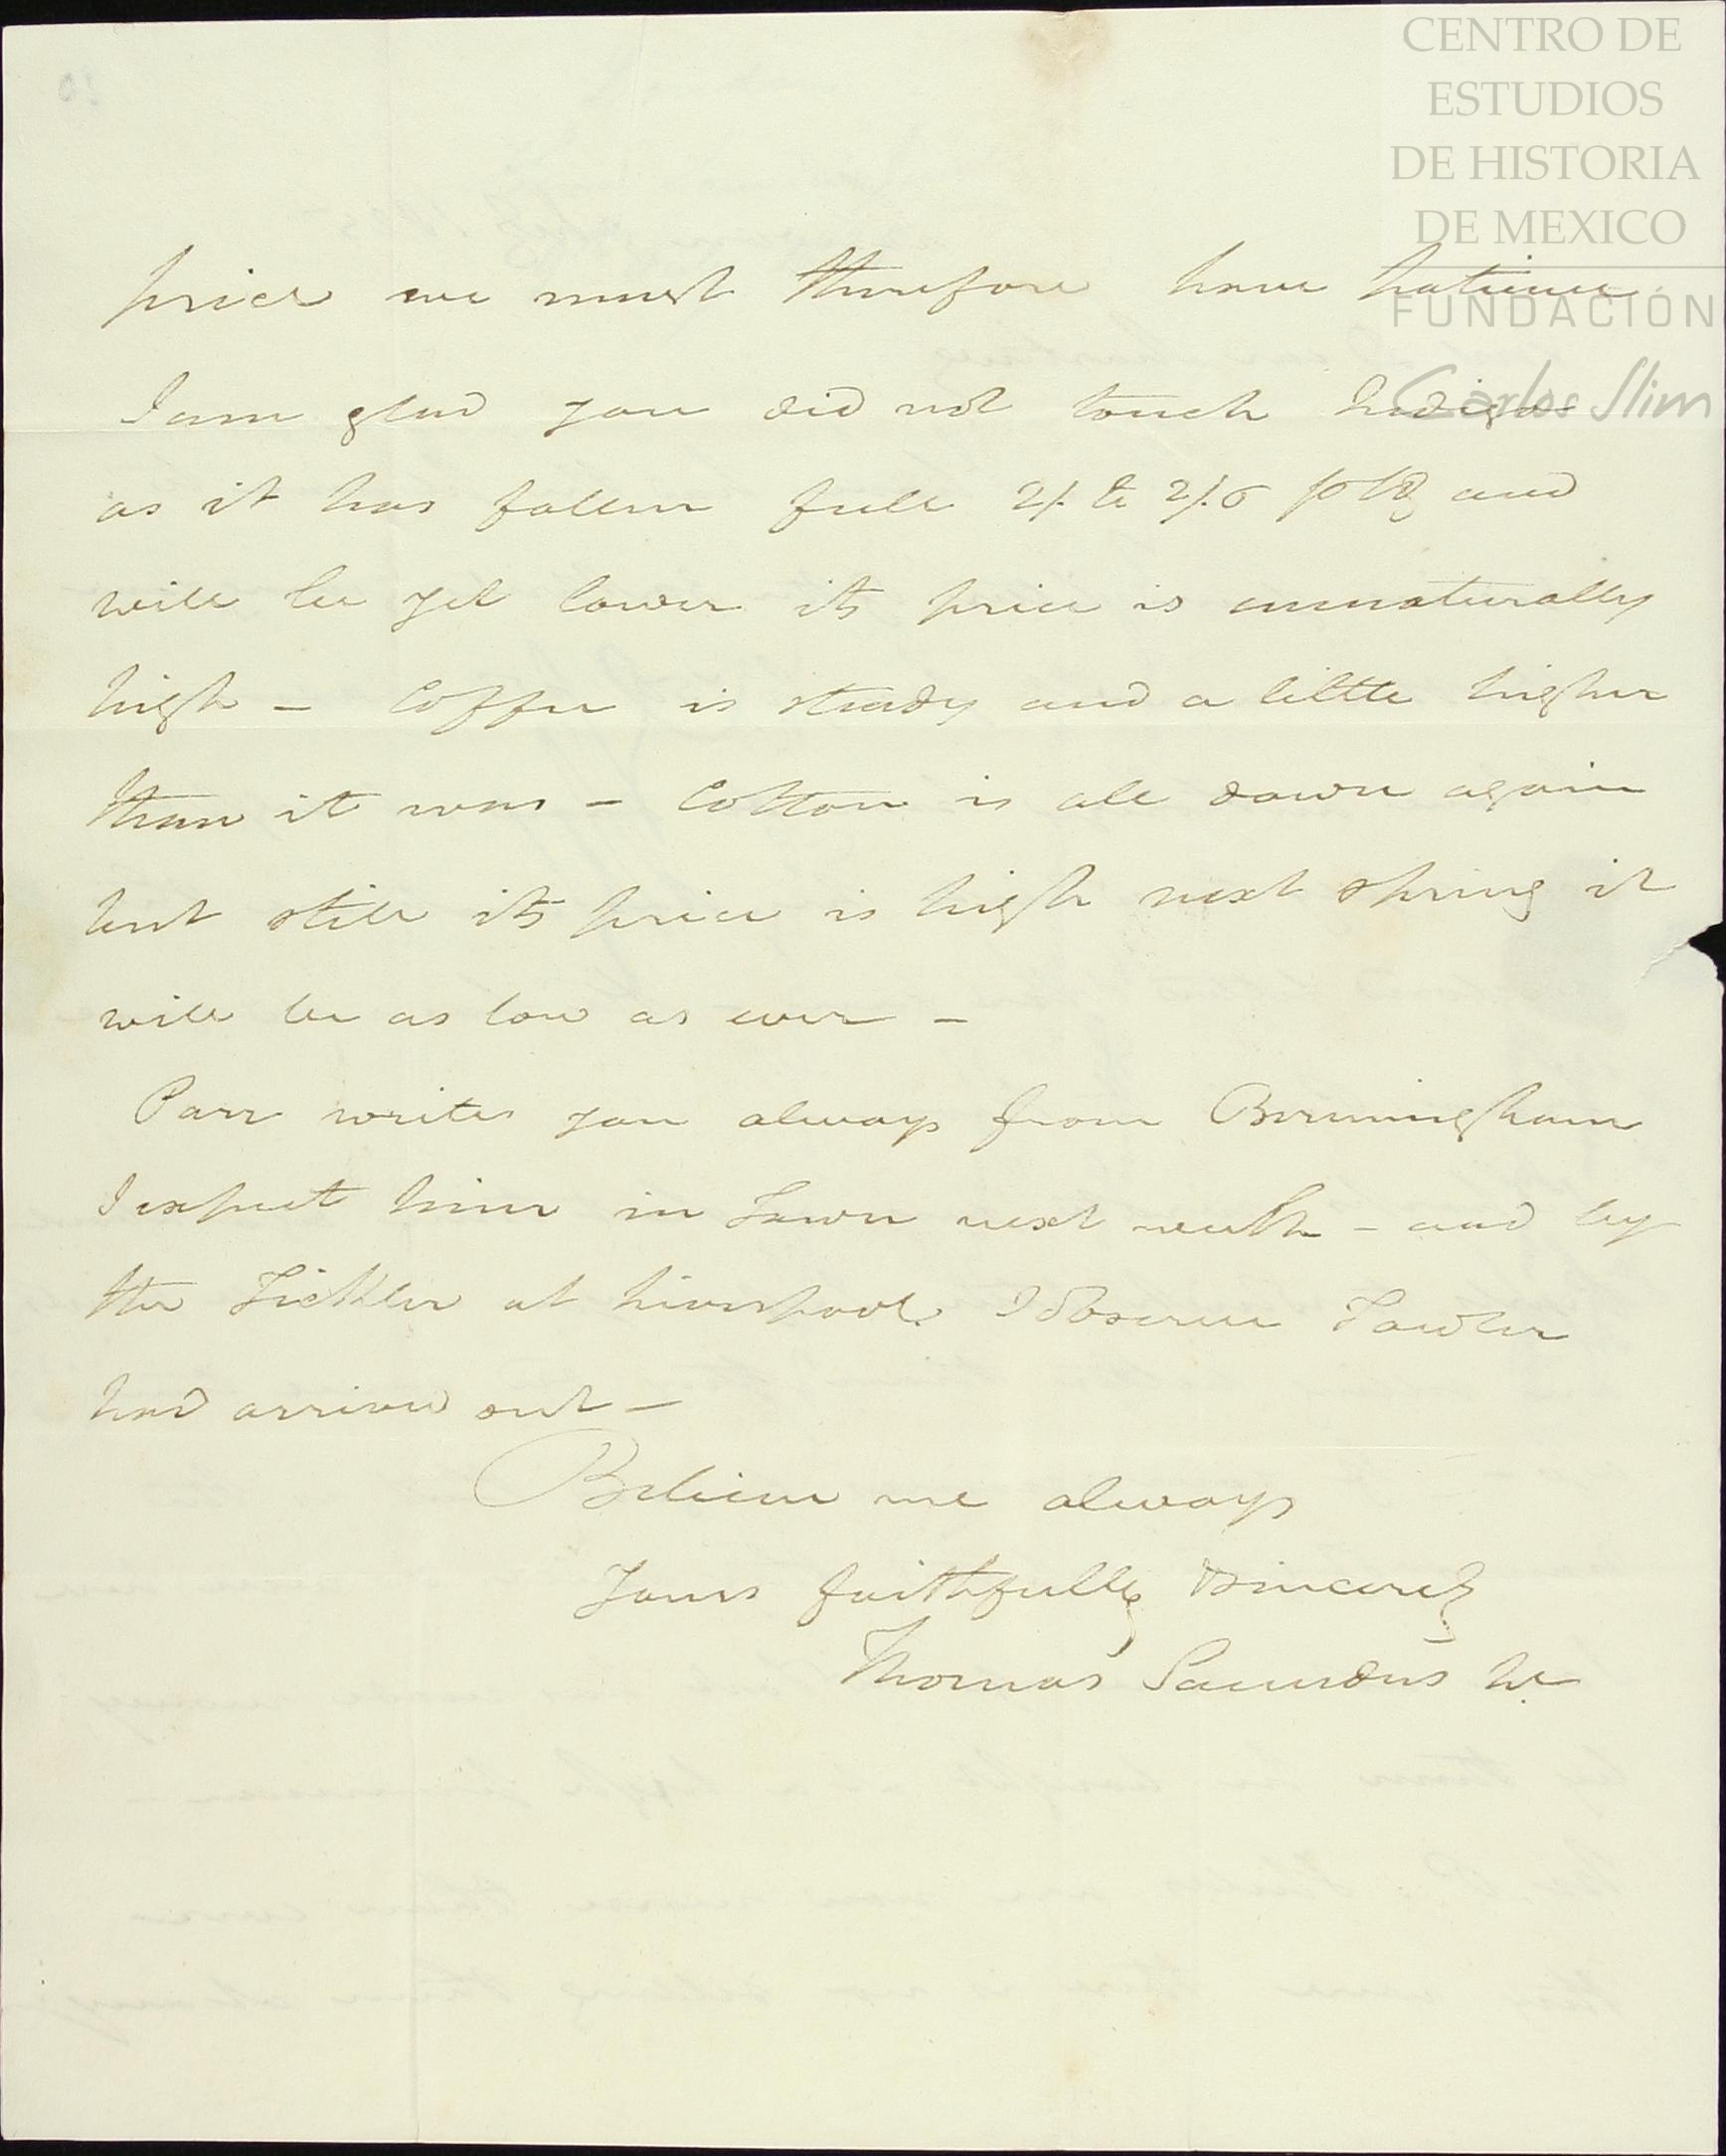 CENTRO DE
ESTUDIOS
DE HISTORIA
DE MEXICO
FUNDACIÓN
Carlos Slim
price we must therefore have patience
I am glad you did not touch Indigo
as it has fallen full 2/. to 2/.6 and
will be yet lower its price is unnaturally
high – Coffee is steady and a little higher
than it was – Cotton is all down again
but still its price is high next spring it
will be as low as ever –
Parr writes you always from Birmingham
I expect him in Town next week – and by
the Tickler at Liverpool I observe Lawler
had arrived out –
Believe me always
Yours faithfully & sincerely
Thomas Saunders